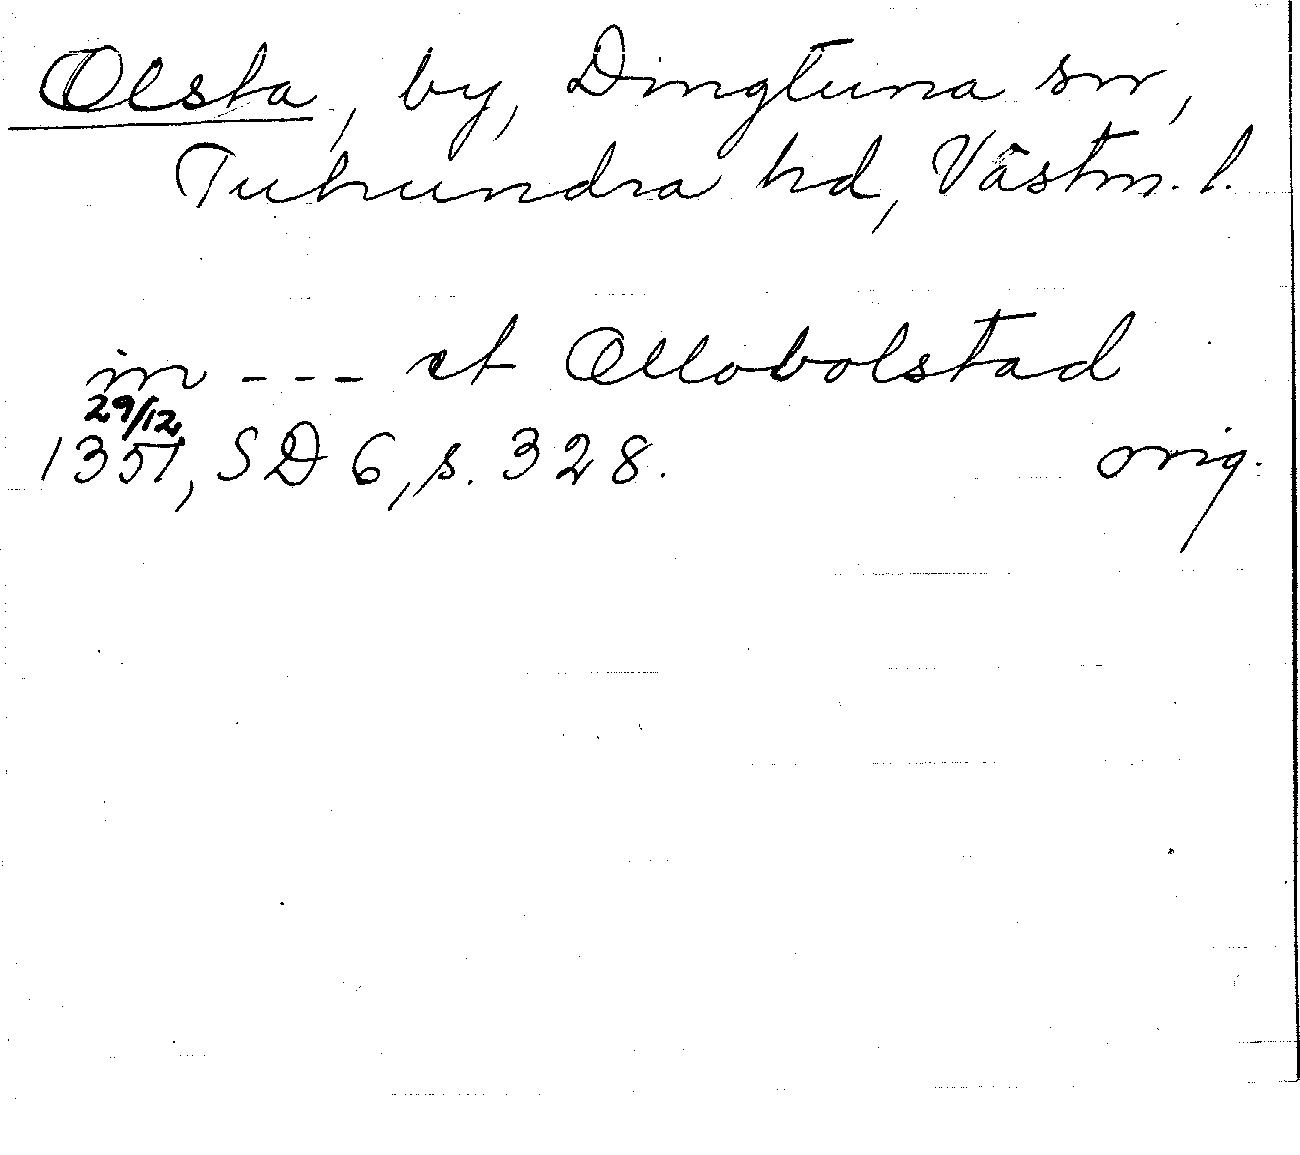 Olsta, by, Dingtuna sn,
Tuhundra hd, Västm. l.
in --- et Ollobolstad
29/12
1351, SD 6, s. 328. orig.